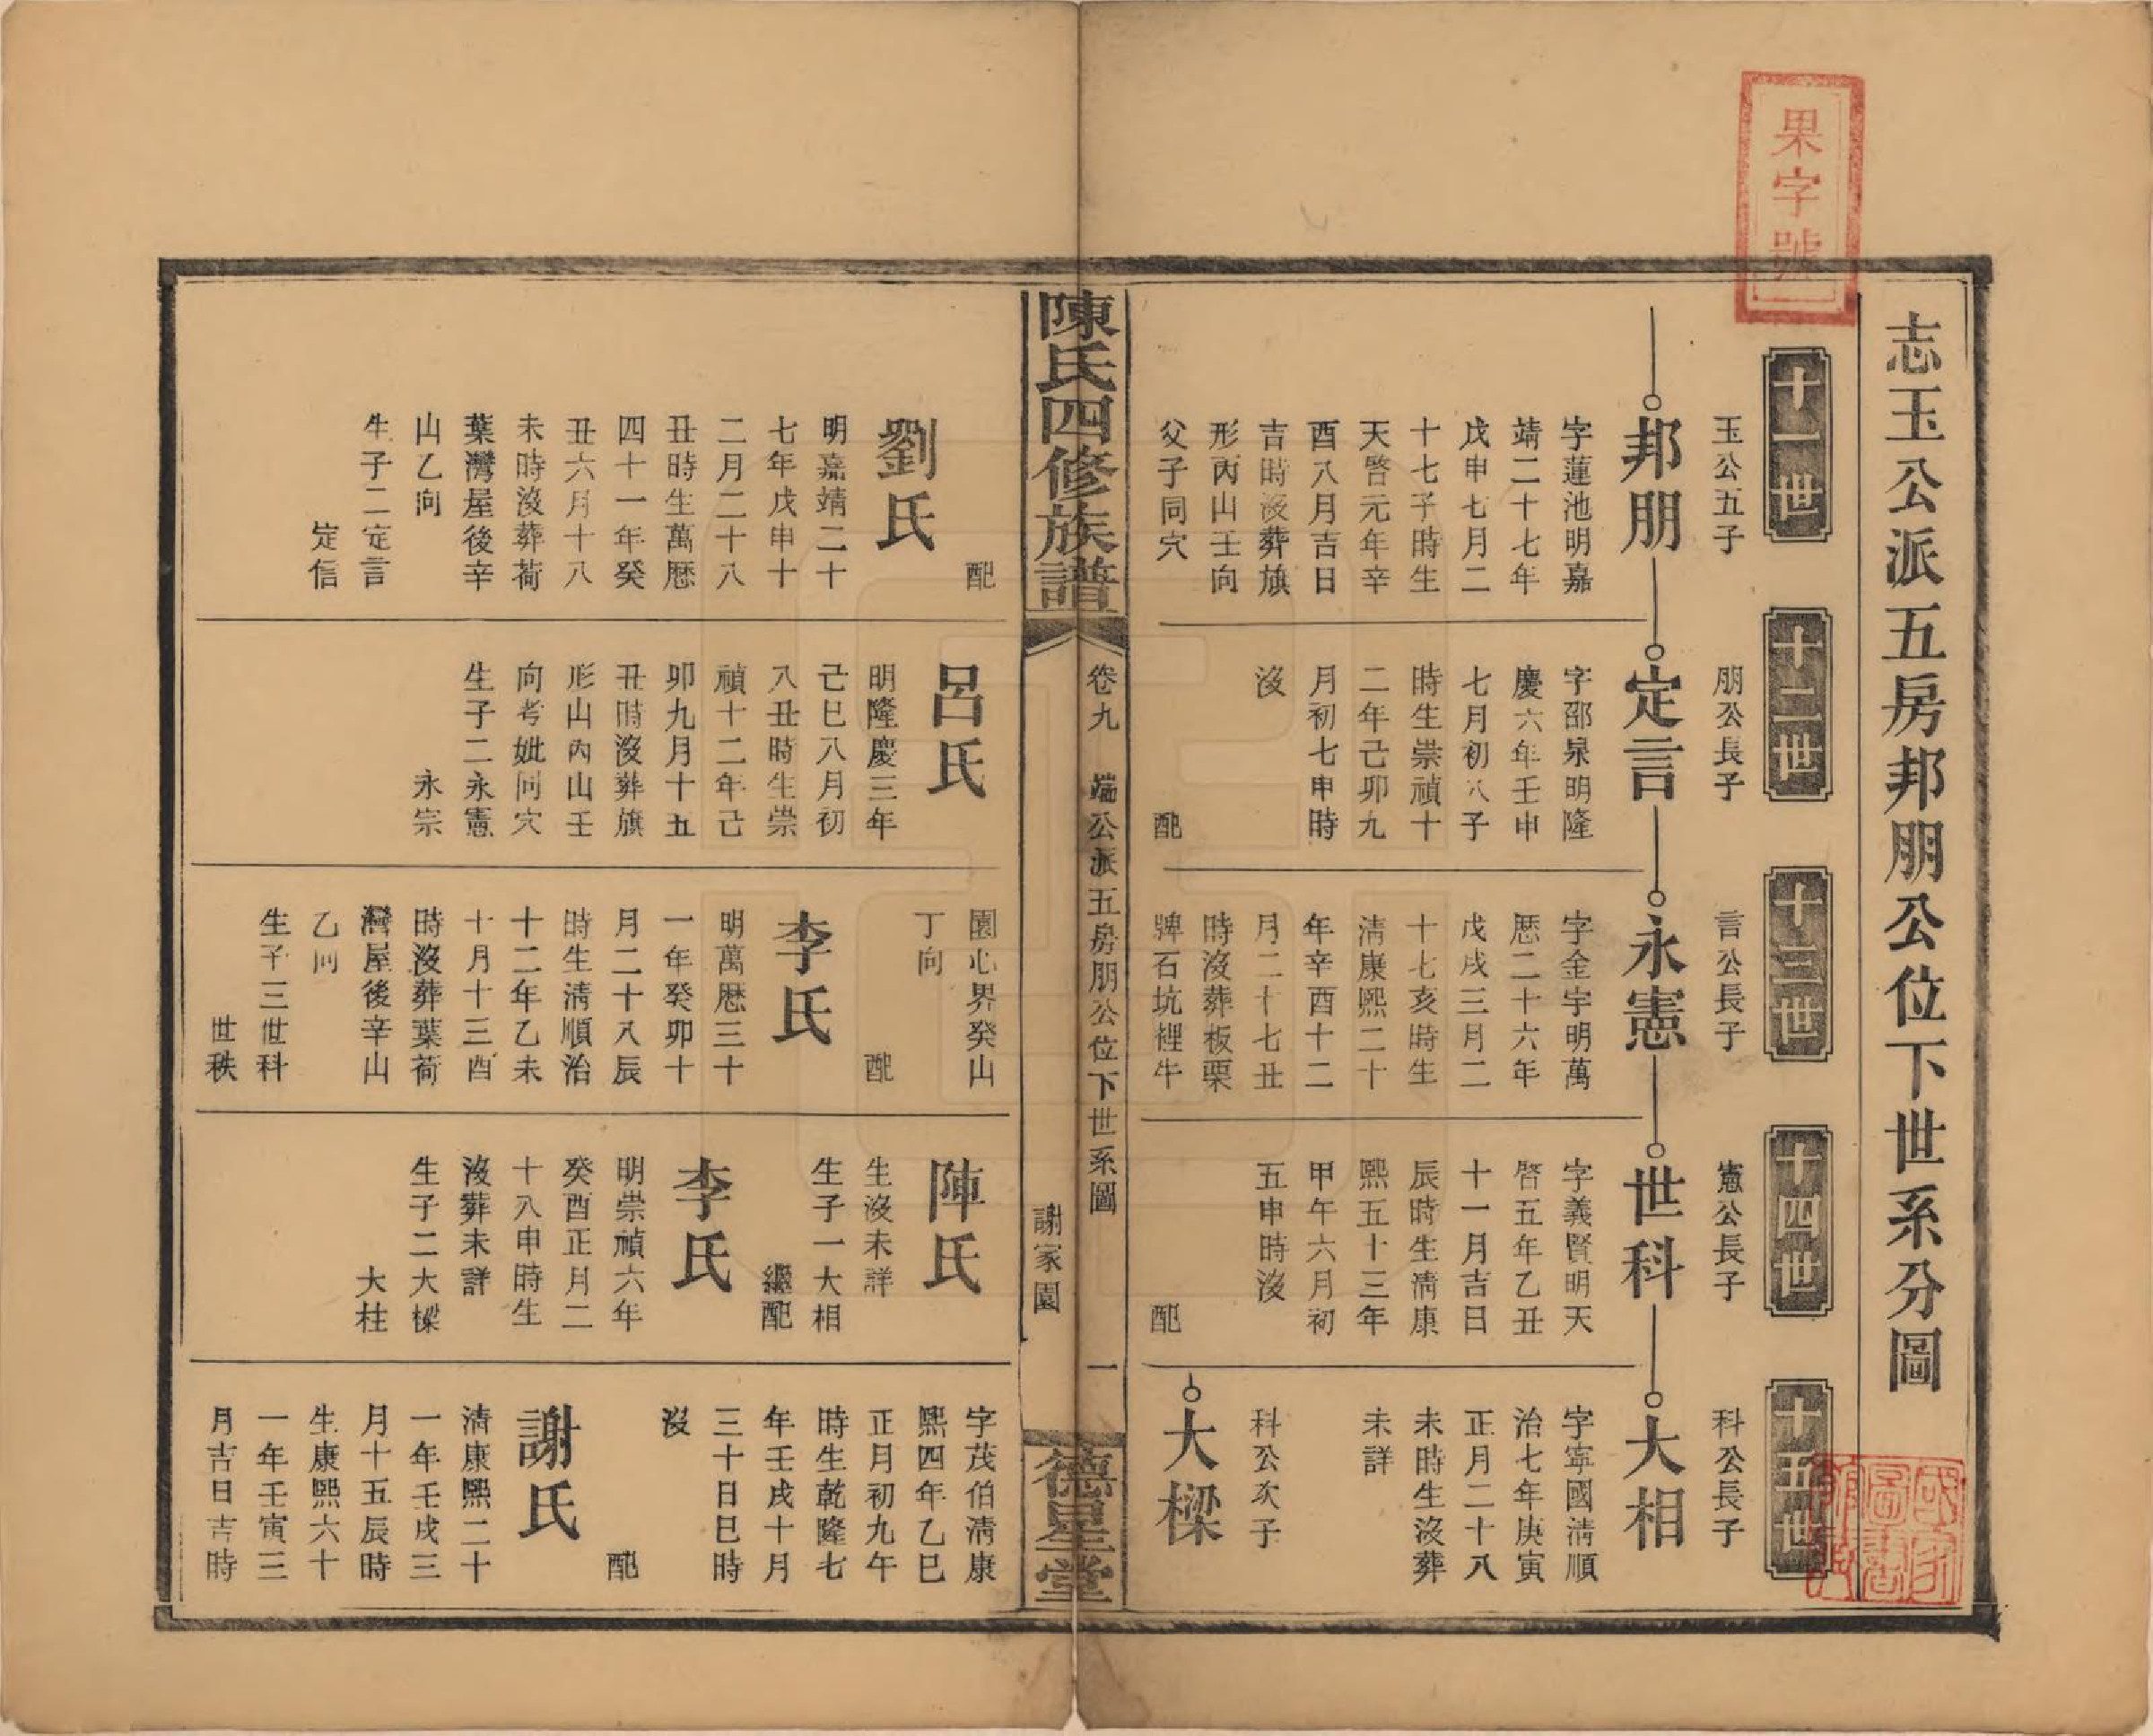 果字號
志玉公派五房邦朋公位下世系分圖
十一世
玉公五子
邦朋
字蓮池明嘉
靖二十七年
戊申七月二
十七子時生
天啓元年辛
酉八月吉日
吉時沒葬旗
形丙山壬向
父子同穴
配
劉氏
明嘉靖二十
七年戊申十
二月二十八
丑時生萬厯
四十一年癸
丑六月十八
未時沒葬荷
葉灣屋後辛
山乙向
生子二定言
定信
十二世
朋公長子
定言
字邵泉明隆
慶六年壬申
七月初八子
時生崇禎十
二年己卯九
月初七申時
沒
配
呂氏
明隆慶三年
己巳八月初
八丑時生崇
禎十二年己
卯九月十五
丑時沒葬旗
形山丙山壬
向考妣同穴
生子二永憲
永宗
十三世
言公長子
永憲
字金宇明萬
厯二十六年
戊戌三月二
十七亥時生
清康熙二十
年辛酉十二
月二十七丑
時沒葬板栗
牌石坑裡牛
園心界癸山
丁向
配
李氏
明萬厯三十
一年癸卯十
月二十八辰
時生清順治
十二年乙未
十月十三酉
時沒葬葉荷
灣屋後辛山
乙向
生子三世科
世秩
十四世
憲公長子
世科
字義賢明天
啓五年乙丑
十一月吉日
辰時生清康
熙五十三年
甲午六月初
五申時沒
配
陳氏
生沒未詳
生子一大相
繼配
李氏
明崇禎六年
癸酉正月二
十八申時生
沒葬未詳
生子二大樑
大柱
十五世
科公長子
大相
字寧國清順
治七年庚寅
正月二十八
未時生沒葬
未詳
科公次子
大樑
字茂伯清康
熙四年乙巳
正月初九午
時生乾隆七
年壬戌十月
三十日巳時
沒
配
謝氏
清康熙二十
一年壬戌三
月十五辰時
生康熙六十
一年壬寅三
月吉日吉時
陳氏四修族譜
卷九
端公派五房朋公位下世系圖
謝家園
一
德星堂